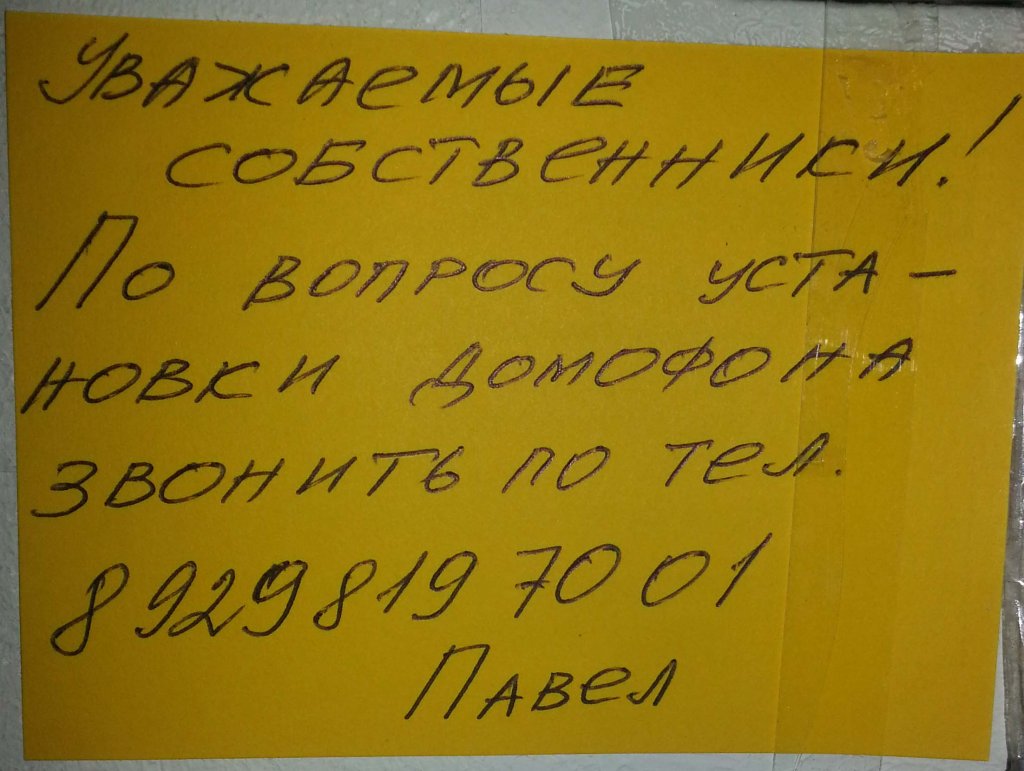 Уважаемые
собственники!
По вопросу уста-
новки домофона
звонить по тел.
8 929 819 70 01
Павел